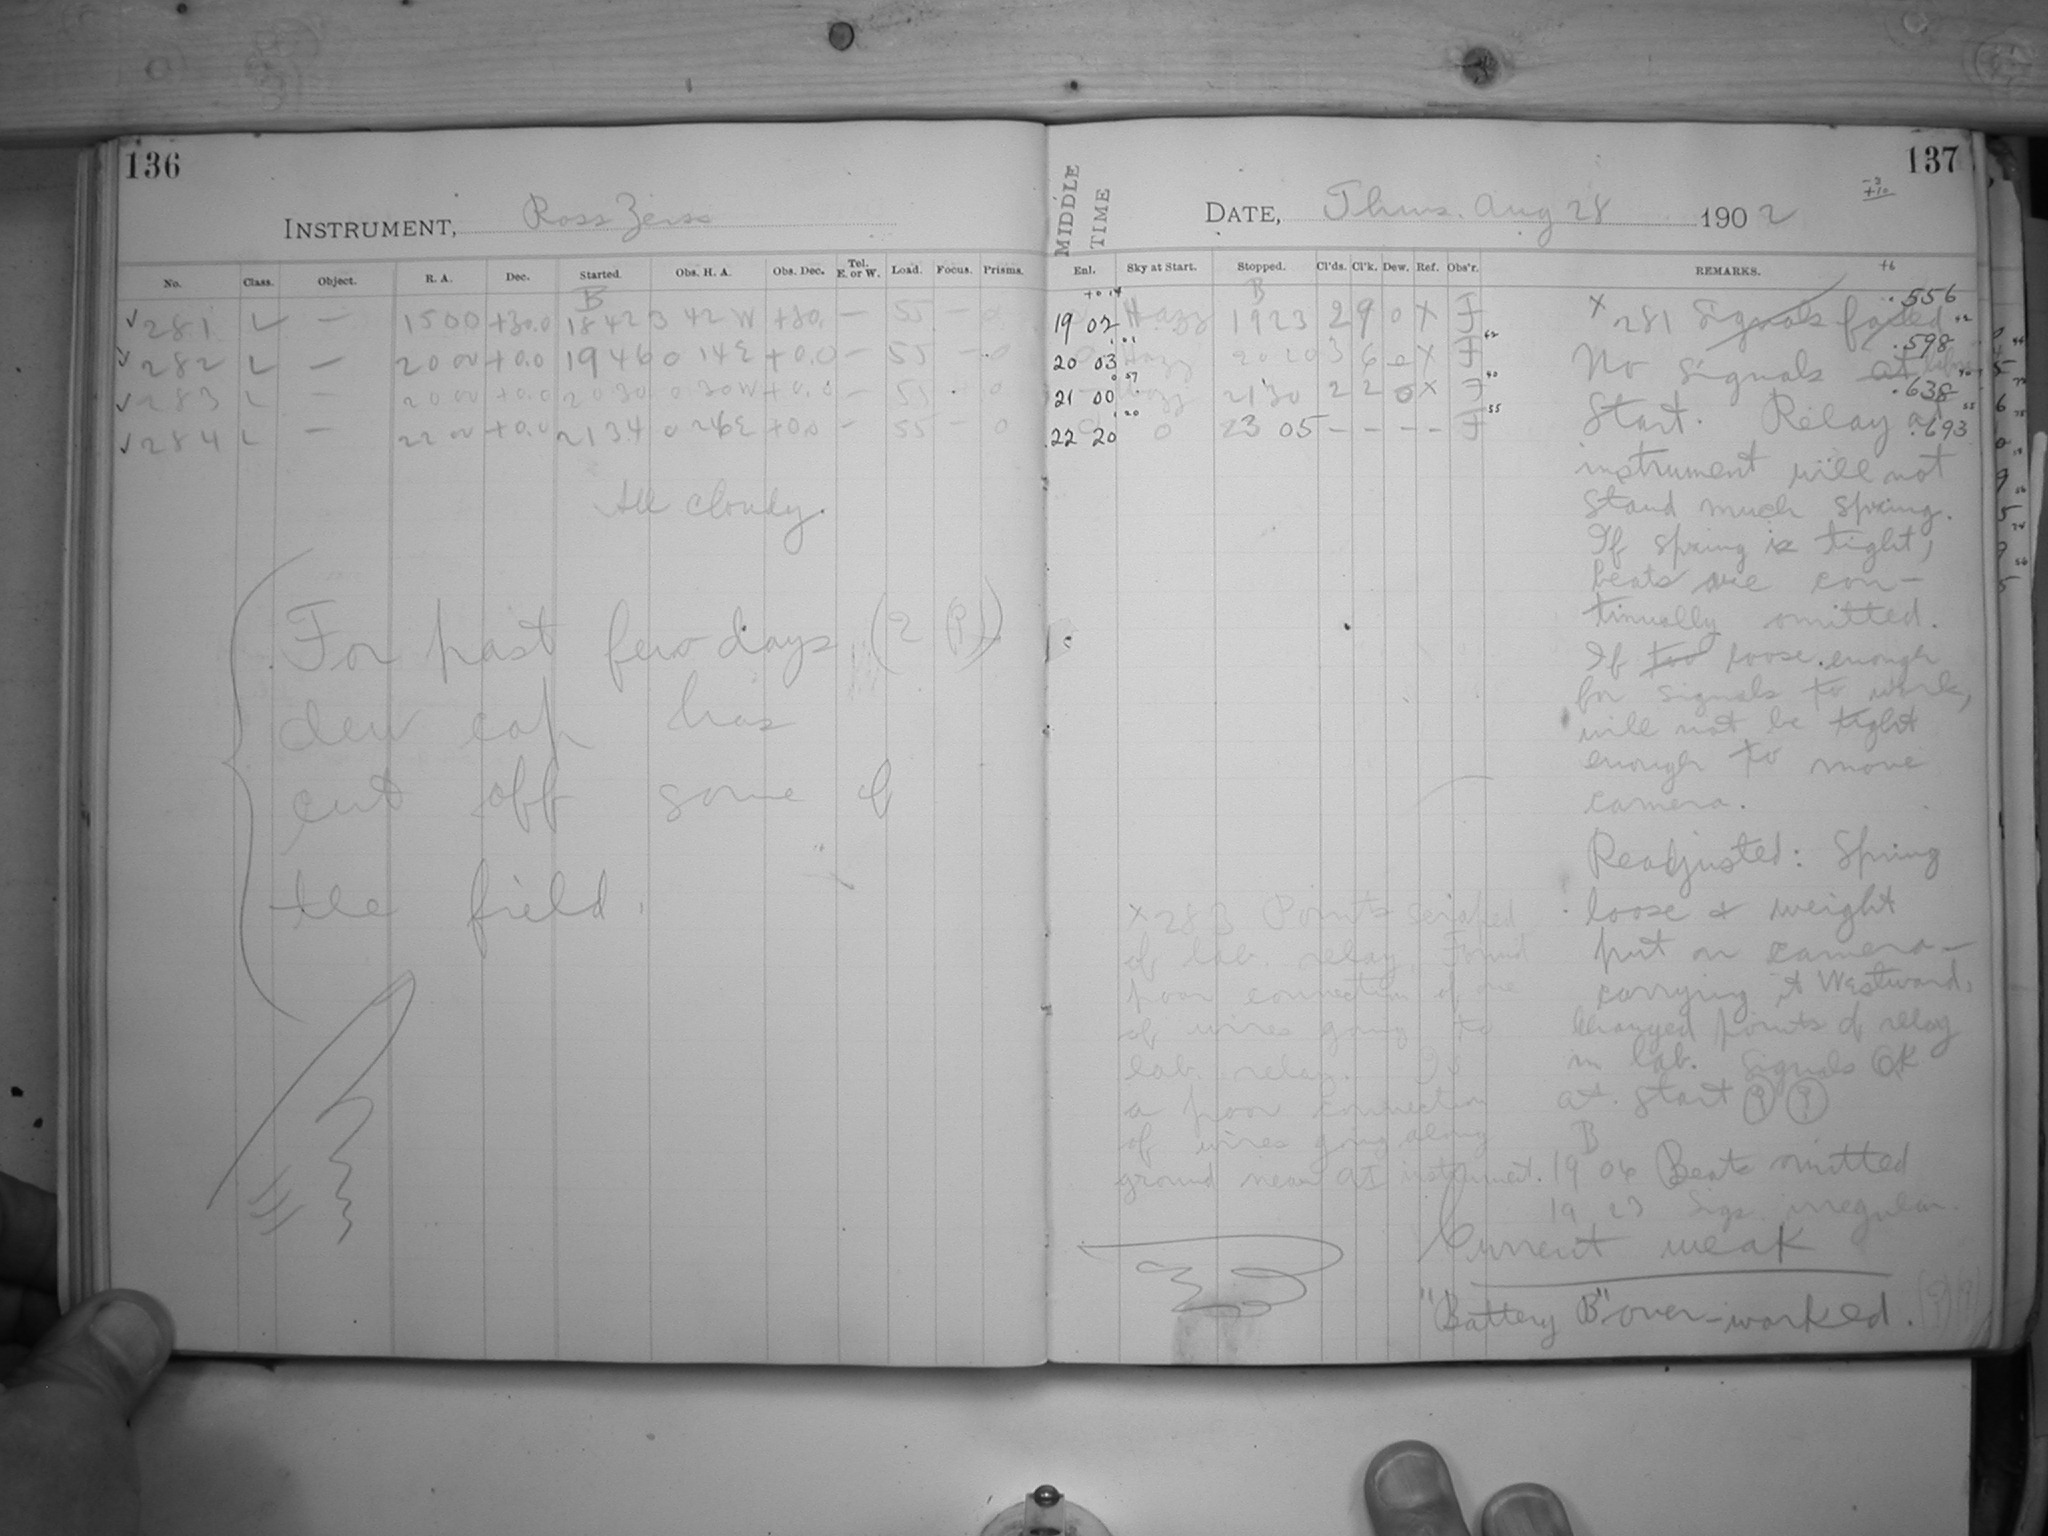 136
INSTRUMENT, Ross Zeiss
No. Class. Object. R. A. Dec. Started. Obs. H. A. Obs. Dec. Tel. E. or W. Load. Focus. Prisms.
B
✓ 281 L — 1500 +30.0 1842 3 42 W +30. — 55 — 0
✓ 282 L — 2000 +0.0 1946 0 14 E +0.0 — 55 — 0
✓ 283 L — 2000 +0.0 2030 0 30 W +0.0 — 55 0
✓ 284 L — 2200 +0.0 2134 0 26 E +0.0 — 55 — 0
All cloudy.
For past few days (2 P)
dew cap has
cut off some of
the field.
137
MIDDLE TIME
DATE, Thurs. Aug 28 1902
Enl. Sky at Start. Stopped. Cl'ds. Cl'k. Dew. Ref. Obs'r. REMARKS.
B
19 02 Hazy 1923 2 9 0 X F
20 03 Hazy 2020 3 6 0 X F
21 00 Hazy 2130 2 2 0 X F
22 20 0 23 05 — — — — F
.556
.598
.638
.693
X 281 Signals failed
No signals at
Start. Relay at
instrument will not
stand much spring.
If spring is tight,
beats are con-
tinually omitted.
If too loose enough
for signals to work,
will not be tight
enough to move
camera.
Readjusted: Spring
loose & weight
put on camera—
carrying it Westward.
Changed points of relay
in lab. Signals OK
at start
B
19 04 Beats omitted
19 23 Sigs. irregular.
Current weak
"Battery B" over-worked.
X 283 Points scraped
of lab. relay. Found
poor connection of one
of wires going to
lab. relay. Is
a poor connection
of wires going along
ground near at instrument.